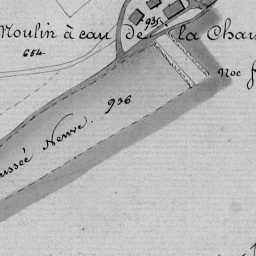 935
Moulin à eau de la Chau
654
Noe f
936
ussée Neuve.